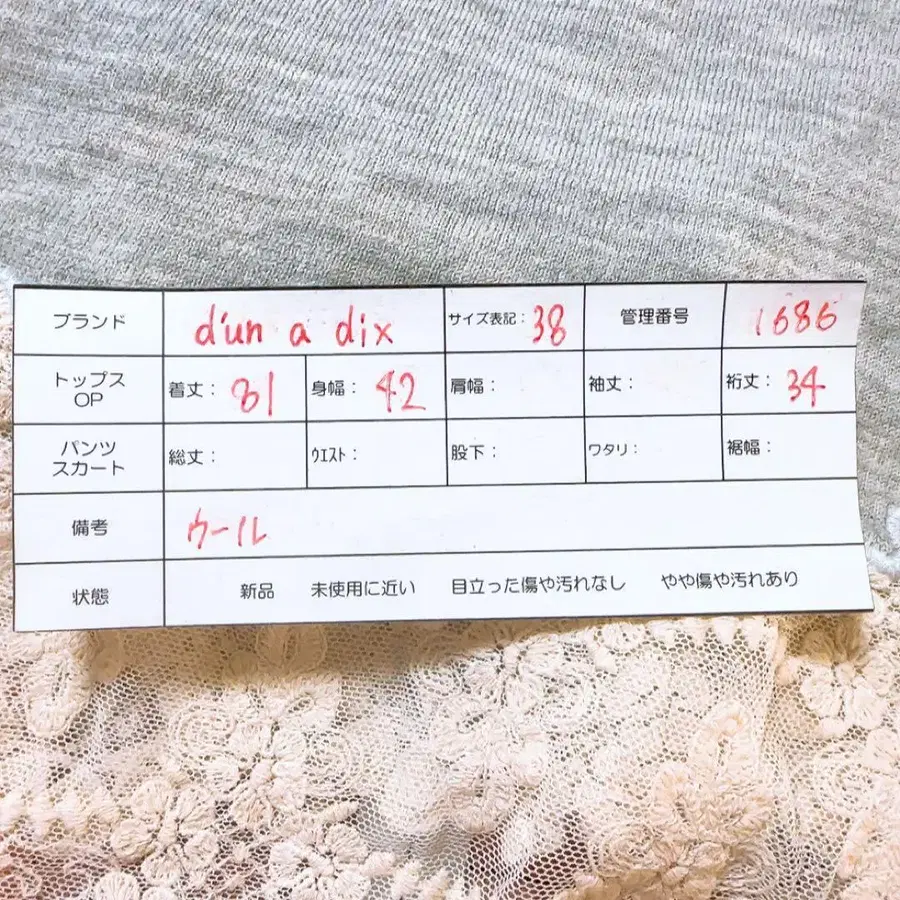 ブランド d'un a dix サイズ表記：38 管理番号 1686
トップス OP 着丈：81 身幅：42 肩幅： 袖丈： 裄丈：34
パンツ スカート 総丈： ウエスト： 股下： ワタリ： 裾幅：
備考 ウール
状態 新品 未使用に近い 目立った傷や汚れなし やや傷や汚れあり